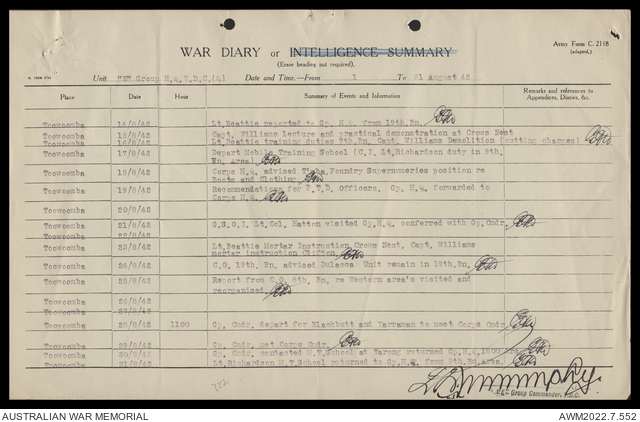 WAR DIARY or INTELLIGENCE SUMMARY
Army Form C. 2118
(adapted.)
(Erase heading not required).
Unit "E" Group H.Q.V.D.C.(Q) Date and Time.—From 1 To 31 August 42
Place Date Hour Summary of Events and Information Remarks and references to
Appendices, Diaries, &c.
Toowoomba 14/8/42 Lt.Beattie reported to Gp. H.Q. from 19th.Bn.
Toowoomba 15/8/42 Capt. Williams lecture and practical demonstration at Crows Nest
Toowoomba 16/8/42 Lt.Beattie training duties 7th.Bn. Capt. Williams Demolition (cutting charges)
Toowoomba 17/8/42 Depart Mobile Training School (C.I. Lt.Richardson duty in 9th.
Bn. Area)
Toowoomba 18/8/42 Corps H.Q. advised Foundry Supernumeries position re
Boots and Clothing
Toowoomba 19/8/42 Recommendations for F.T.D. Officers. Gp. H.Q. forwarded to
Corps H.Q.
Toowoomba 20/8/42
Toowoomba 21/8/42 G.S.O.I. Lt.Col. Hatton visited Gp.H.Q. conferred with Gp.Cmdr.
Toowoomba 22/8/42
Toowoomba 23/8/42 Lt.Beattie Mortar Instruction Crows Nest. Capt. Williams
mortar instruction Clifton
Toowoomba 24/8/42 C.O. 19th. Bn. advised Dulacca Unit remain in 19th.Bn.
Toowoomba 25/8/42 Report from C.O. 8th. Bn. re Western area's visited and
reorganised
Toowoomba 26/8/42
Toowoomba 27/8/42
Toowoomba 28/8/42 1100 Gp. Cmdr. depart for Blackbutt and Yarraman to meet Corps Cmdr.
Toowoomba 29/8/42 Gp. Cmdr. met Corps Cmdr.
Toowoomba 30/8/42 Gp. Cmdr. contacted M.T.School at Tarong returned Gp.H.Q.1800 hrs
Toowoomba 31/8/42 Lt.Richardson M.T.School returned to Gp.H.Q. from 9th.Bn.Area.
"E" Group Commander, V.D.C.
AUSTRALIAN WAR MEMORIAL AWM2022.7.552